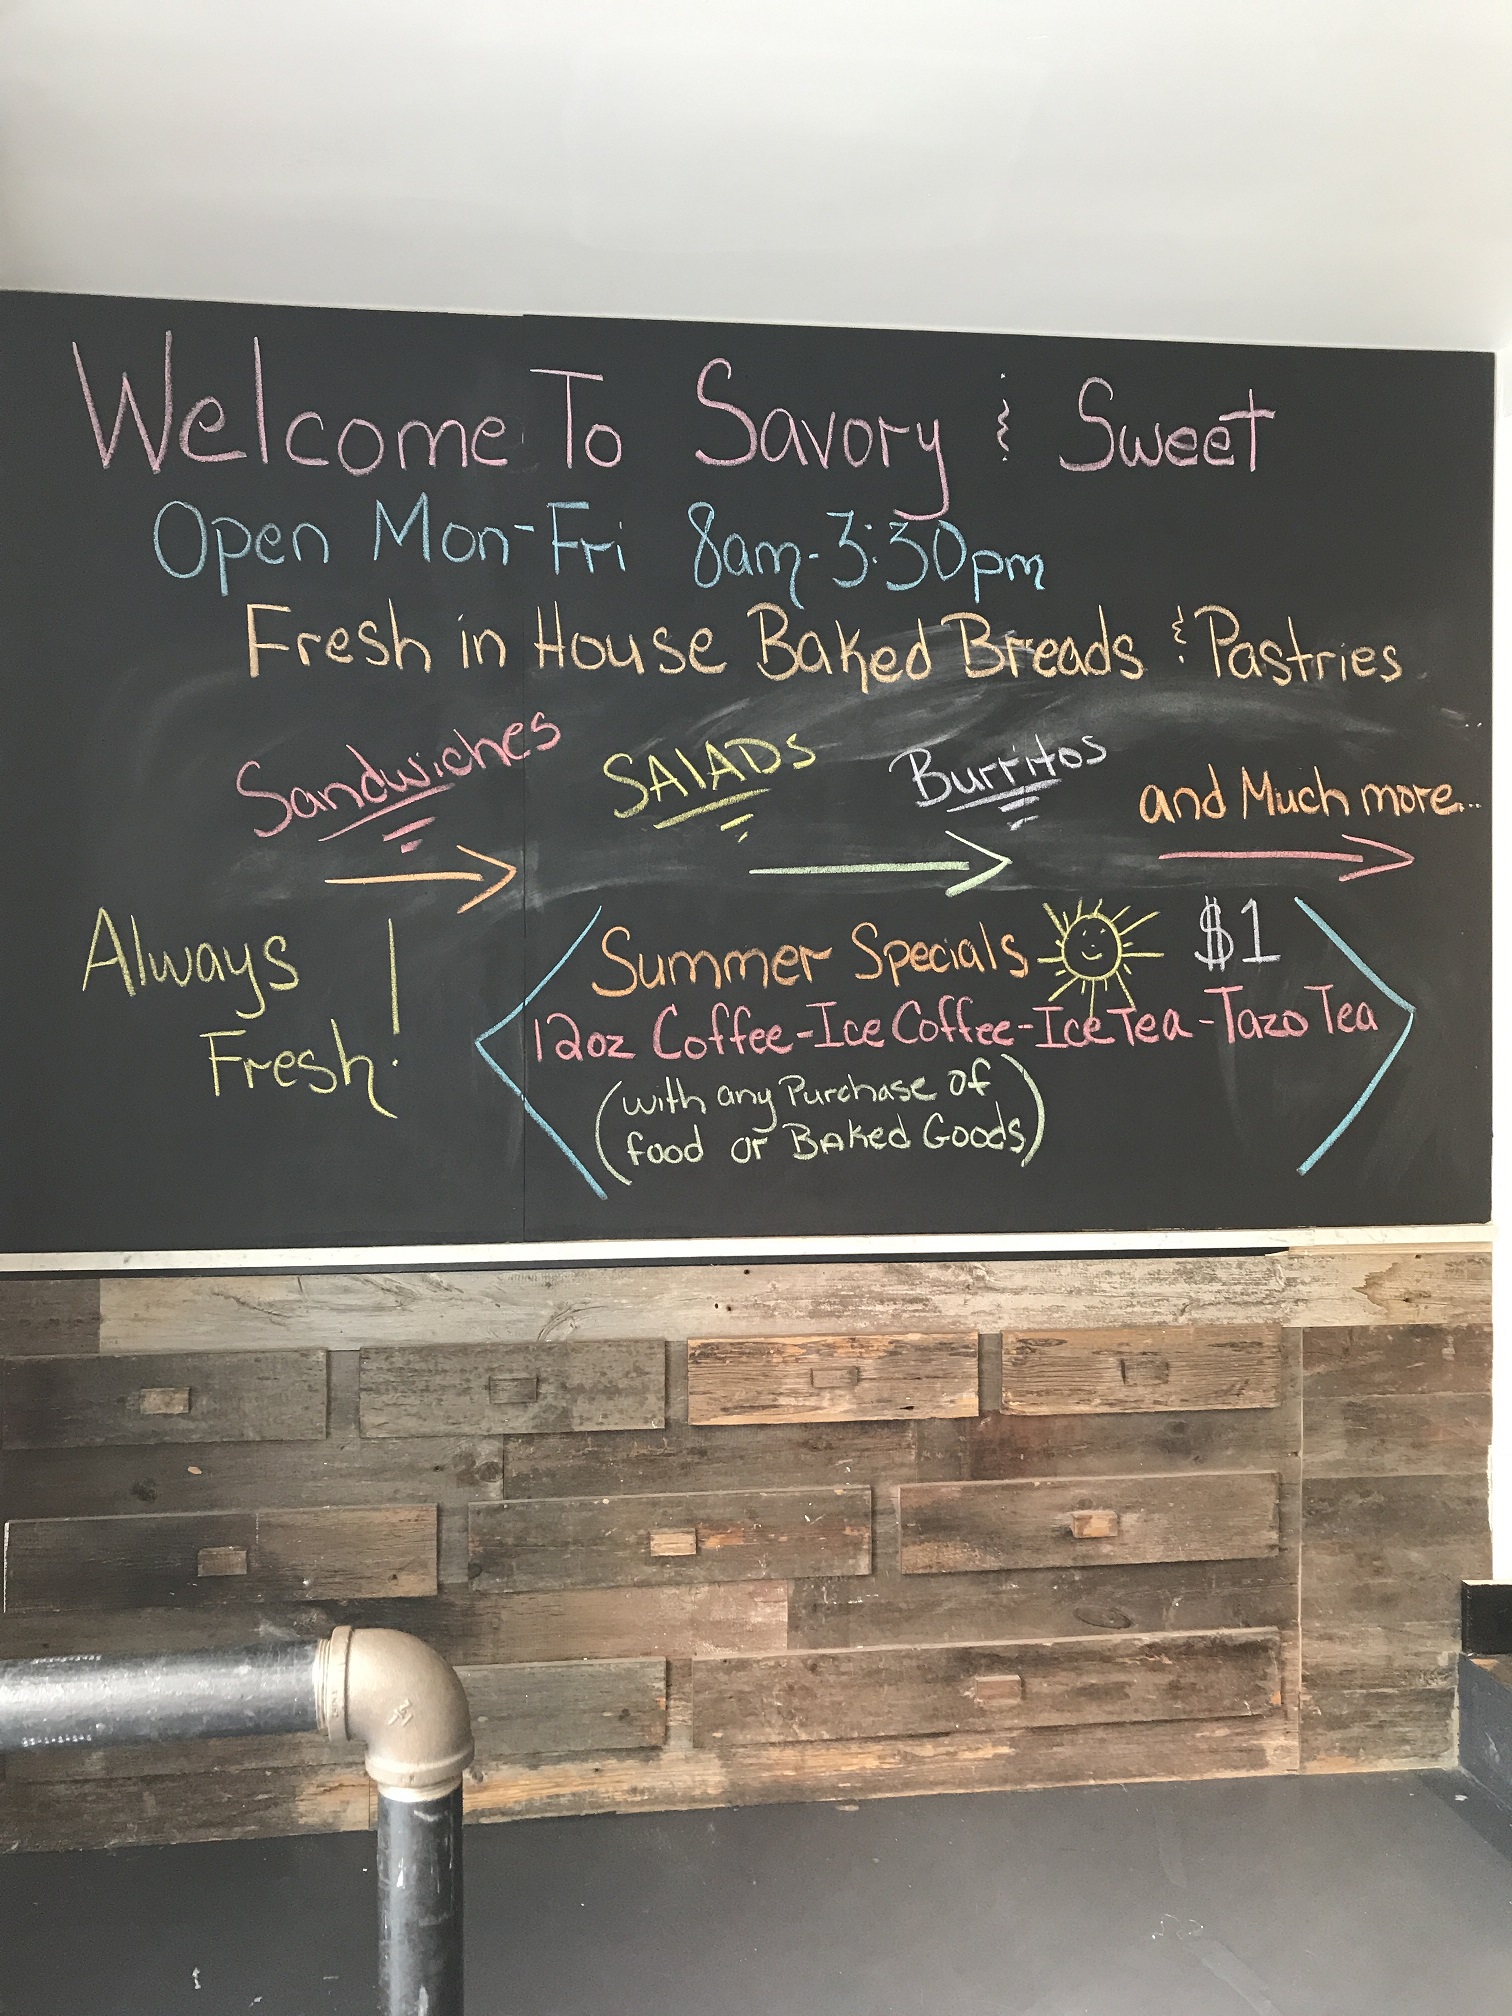 Welcome To Savory & Sweet
Open Mon-Fri 8am-3:30pm
Fresh in House Baked Breads & Pastries
Sandwiches SAlADs Burritos and Much more...
Always
Fresh!
Summer Specials $1
12oz Coffee-Ice Coffee-Ice Tea-Tazo Tea
(with any Purchase of
food or BAked Goods)